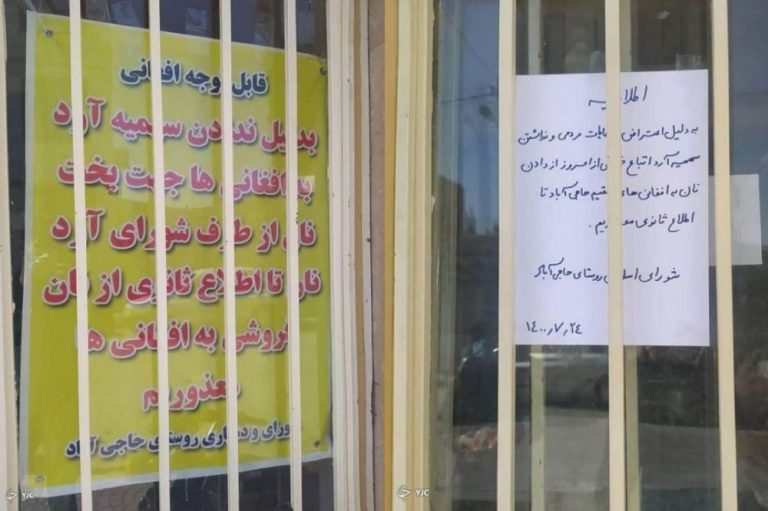 قابل توجه افغانی
بدلیل ندادن سهمیه آرد
به افغانی ها جهت پخت
نان از طرف شورای آرد
نان تا اطلاع ثانوی از نان
فروشی به افغانی ها
معذوریم
شورای و دهیاری روستای حاجی آباد
اطلاعیه
به دلیل اعتراض مردمی و نداشتن
سهمیه آرد اتباع از امروز از دادن
نان به افغانی های مقیم حاجی آباد تا
اطلاع ثانوی معذوریم.
شورای اسلامی روستای حاجی آباد
۱۴۰۰٫۷٫۲۴
YJC
YJC